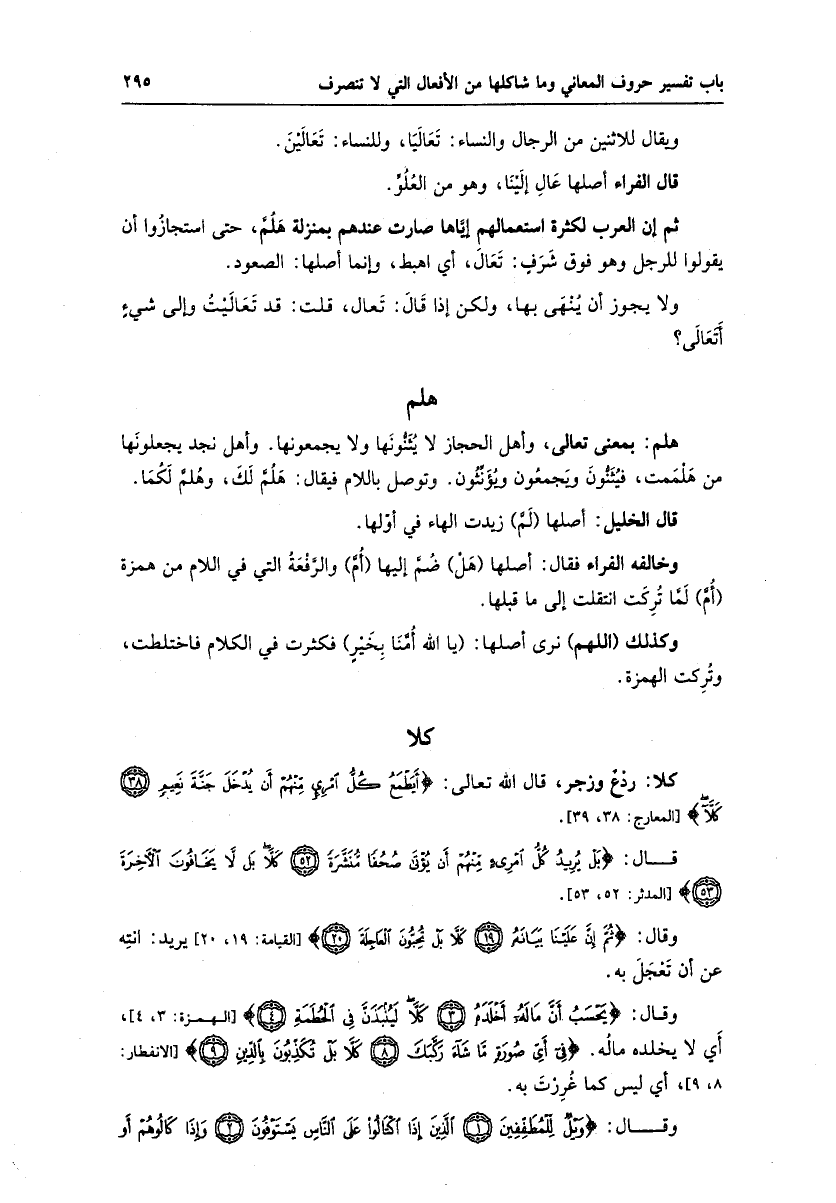 باب تفسير حروف المعاني وما شاكلها من الأفعال التي لا تتصرف ٢٩٥
ويقال للاثنين من الرجال والنساء: تَعَالَيَا، وللنساء: تَعَالَيْنَ.
قال الفراء أصلها عَالِ إلَيْنَا، وهو من العُلُوِّ.
ثم إن العرب لكثرة استعمالهم إيَّاها صارت عندهم بمنزلة هَلُمَّ، حتى استجازُوا أن
يقولوا للرجل وهو فوق شَرَفٍ: تَعَالَ، أي اهبط، وإنما أصلها: الصعود.
ولا يجوز أن يُنْهَى بها، ولكن إذا قَالَ: تَعال، قلت: قد تَعَالَيْتُ وإلى شيءٍ
أَتَعَالَى؟
هلم
هلم: بمعنى تعالى، وأهل الحجاز لا يُثَنُّونَها ولا يجمعونها. وأهل نجد يجعلونَها
من هَلْمَمت، فيُثَنُّونَ ويَجمعُون ويُؤَنِّثُون. وتوصل باللام فيقال: هَلُمَّ لَكَ، وهُلمَّ لَكُمَا.
قال الخليل: أصلها (لَمَّ) زيدت الهاء في أوّلها.
وخالفه الفراء فقال: أصلها (هَلْ) ضُمَّ إليها (أُمَّ) والرَّفْعَةُ التي في اللام من همزة
(أُمَّ) لَمَّا تُرِكَت انتقلت إلى ما قبلها.
وكذلك (اللهم) نرى أصلها: (يا الله أُمَّنَا بِخَيْرٍ) فكثرت في الكلام فاختلطت،
وتُرِكت الهمزة.
كلا
كلا: ردْعٌ وزجر، قال الله تعالى: ﴿أَيَطْمَعُ كُلُّ ٱمْرِيٍٕ مِّنْهُمْ أَن يُدْخَلَ جَنَّةَ نَعِيمٍ ﴿٣٨﴾
كَلَّآۖ﴾ [المعارج: ٣٨، ٣٩].
قــال: ﴿بَلْ يُرِيدُ كُلُّ ٱمْرِىءٍ مِّنْهُمْ أَن يُؤْتَىٰ صُحُفًا مُّنَشَّرَةً ﴿٥٢﴾ كَلَّاۖ بَل لَّا يَخَافُونَ ٱلْآخِرَةَ
﴿٥٣﴾﴾ [المدثر: ٥٢، ٥٣].
وقال: ﴿ثُمَّ إِنَّ عَلَيْنَا بَيَانَهُۥ ﴿١٩﴾ كَلَّا بَلْ تُحِبُّونَ ٱلْعَاجِلَةَ ﴿٢٠﴾﴾ [القيامة: ١٩، ٢٠] يريد: انتِه
عن أن تَعْجَلَ به.
وقـال: ﴿يَحْسَبُ أَنَّ مَالَهُۥٓ أَخْلَدَهُۥ ﴿٣﴾ كَلَّاۖ لَيُنۢبَذَنَّ فِى ٱلْحُطَمَةِ ﴿٤﴾﴾ [الـهـمـزة: ٣، ٤]،
أَي لا يخلده مالُه. ﴿فِىٓ أَىِّ صُورَةٍ مَّا شَآءَ رَكَّبَكَ ﴿٨﴾ كَلَّا بَلْ تُكَذِّبُونَ بِٱلدِّينِ ﴿٩﴾﴾ [الانفطار:
٨، ٩]، أي ليس كما غُرِرْتَ به.
وقــــال: ﴿وَيْلٌ لِّلْمُطَفِّفِينَ ﴿١﴾ ٱلَّذِينَ إِذَا ٱكْتَالُوا۟ عَلَى ٱلنَّاسِ يَسْتَوْفُونَ ﴿٢﴾ وَإِذَا كَالُوهُمْ أَو